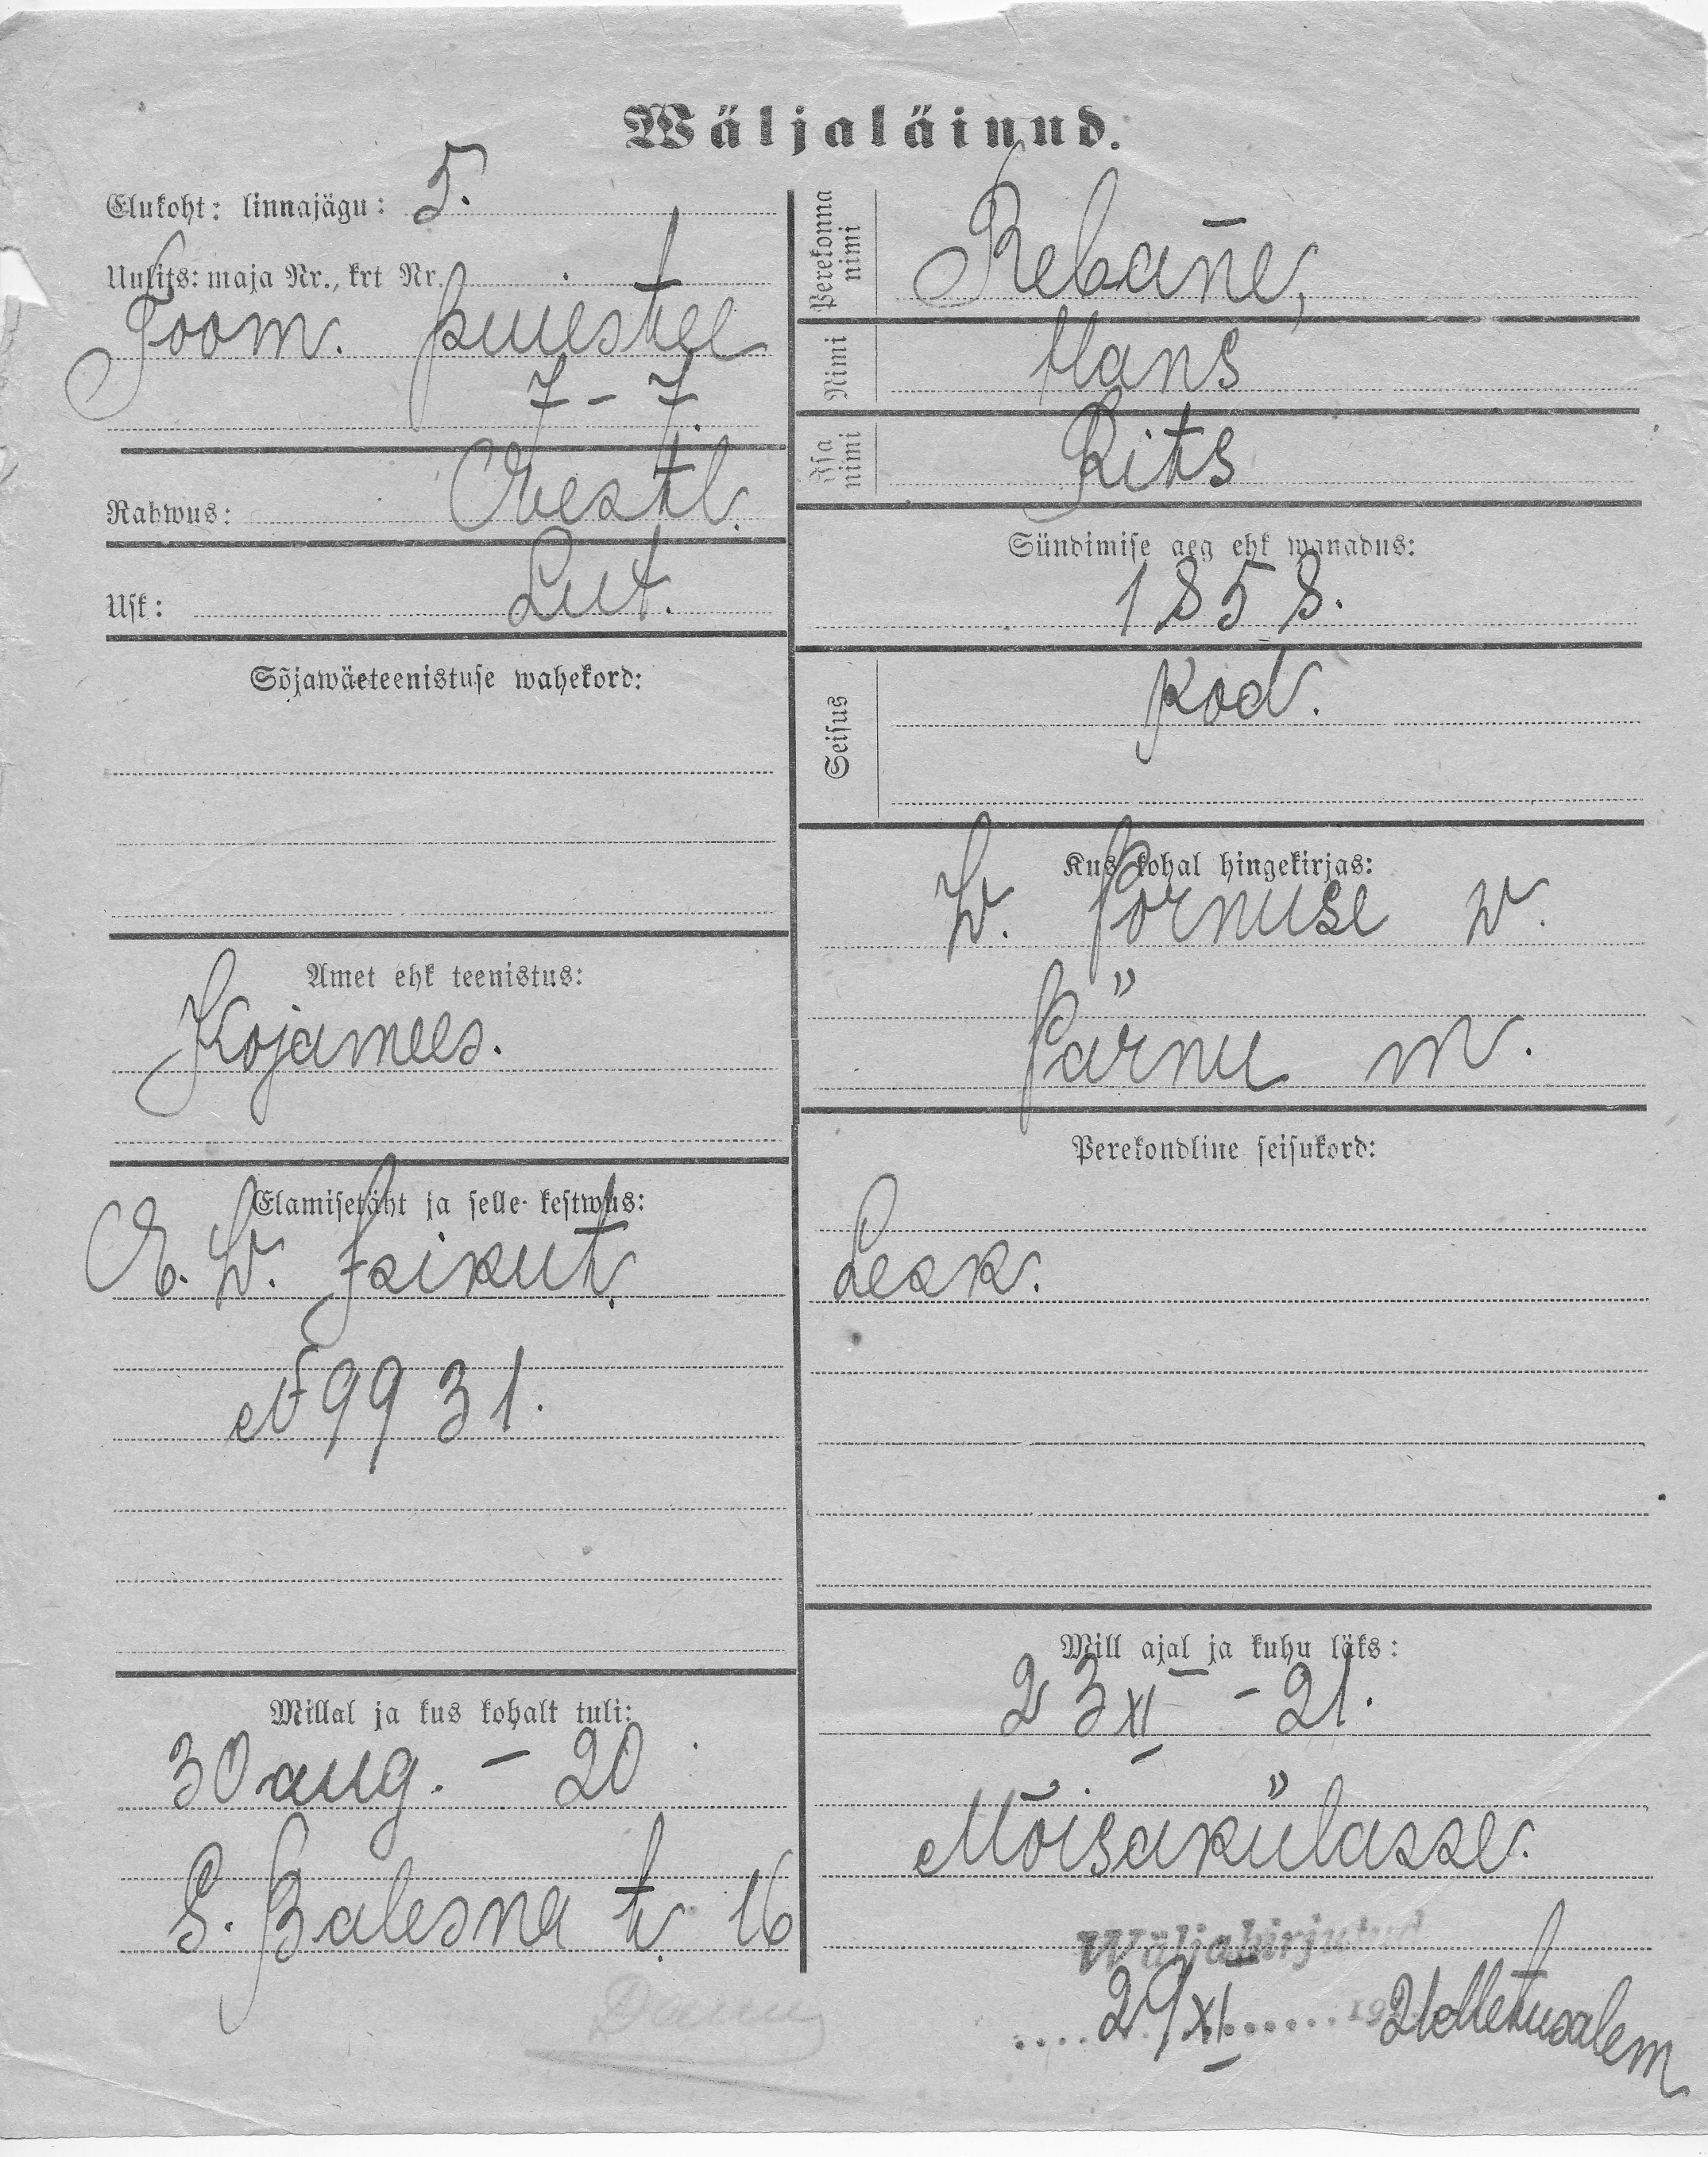 Wäljaläinud.
Elukoht: linnajägu: 5.
Uulits: maja Nr., krt Nr.
Toom. puiestee
7 - 7.
Rahwus: Eestl.
Usk: Lut.
Sõjawäeteenistuse wahekord:
Amet ehk teenistus:
Kojamees.
Elamisetäht ja selle kestwus:
E. W. Isikut.
№ 9931.
Millal ja kus kohalt tuli:
30 aug. - 20
S. t. 16
Perekonna nimi
Rebane,
Nimi
Hans
Isa nimi
Rits
Sündimise aeg ehk wanadus:
1858.
Seisus
kod.
Kus kohal hingekirjas:
W. Pornuse w.
Pärnu m.
Perekondline seisukord:
Lesk.
Mill ajal ja kuhu läks:
23 XI - 21.
Mõisakülasse.
Wäljakirjutud
29 XI 1921 Metusalem